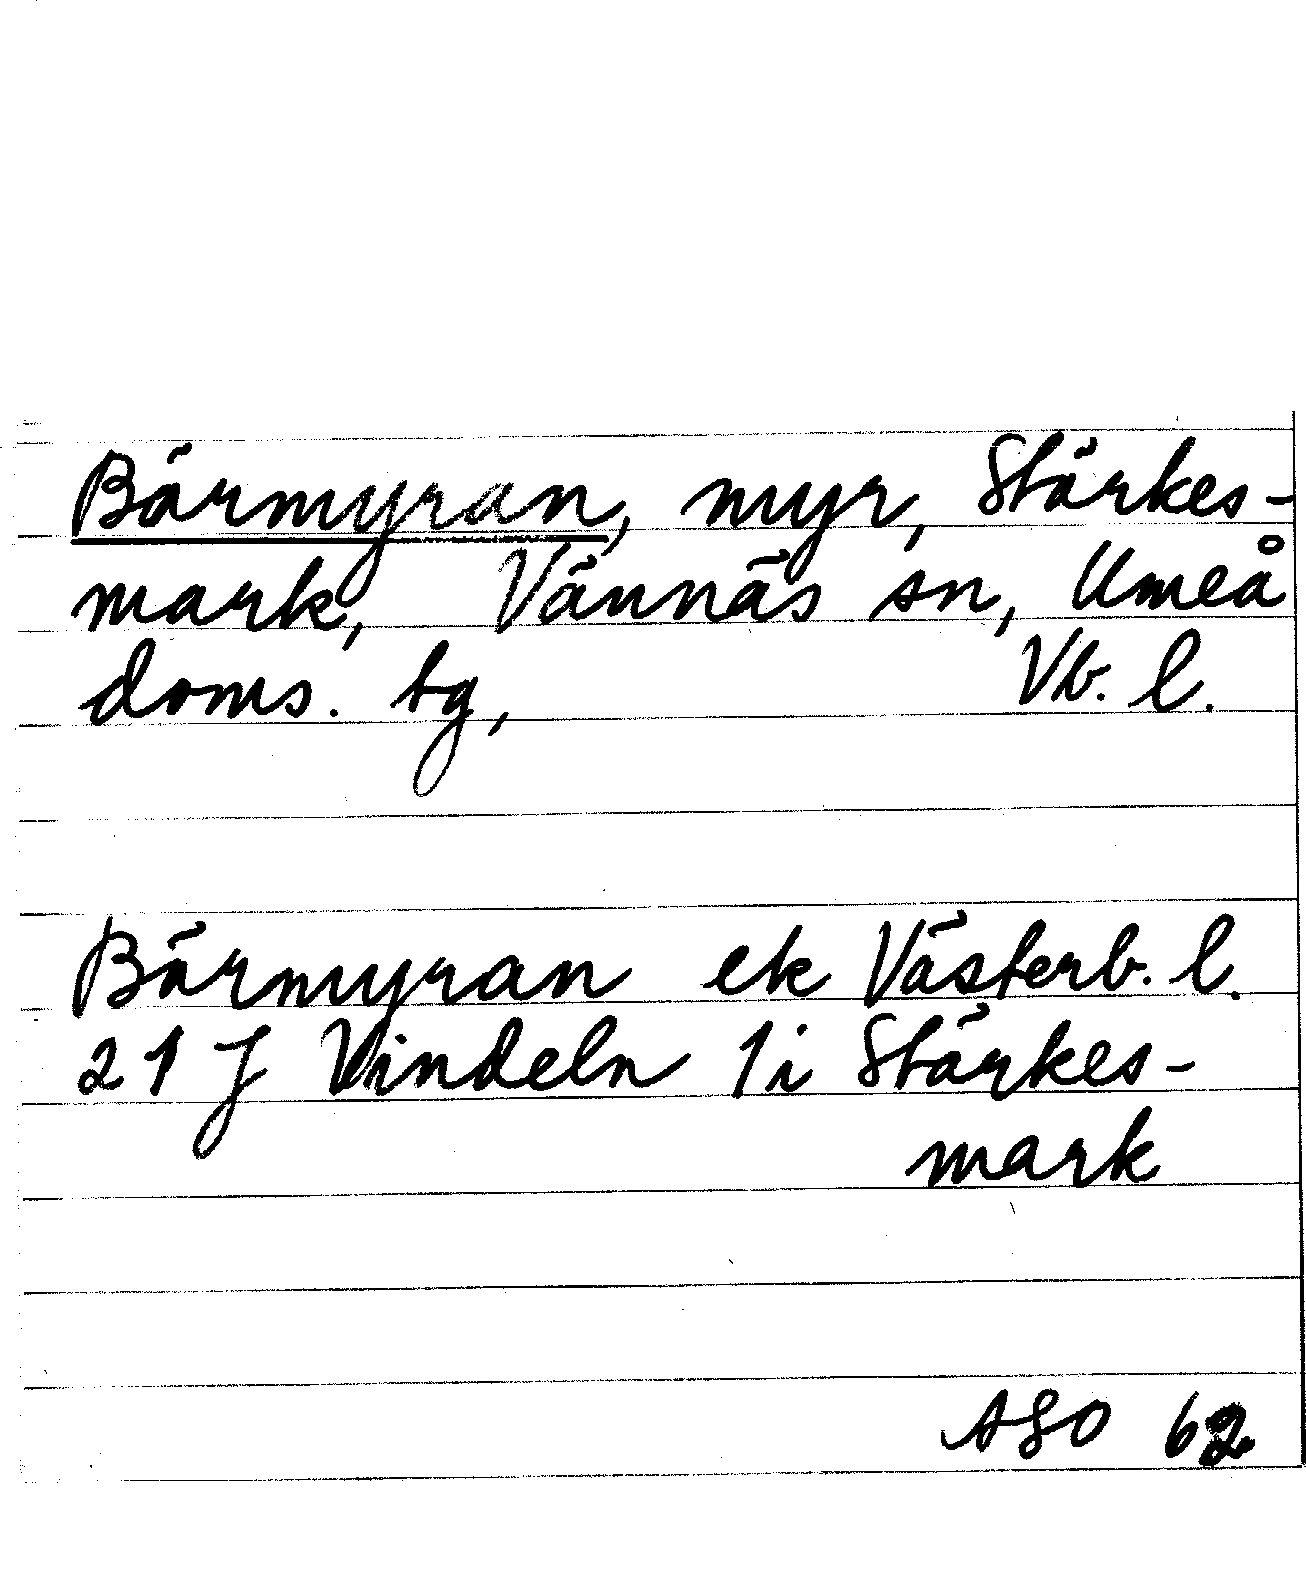 Bärmyran, myr, Stärkes-
mark, Vännäs sn, Umeå
doms. tg, Vb. l.
Bärmyran ek Västerb. l.
21 J Vindeln 1i Stärkes-
mark
ASO 62